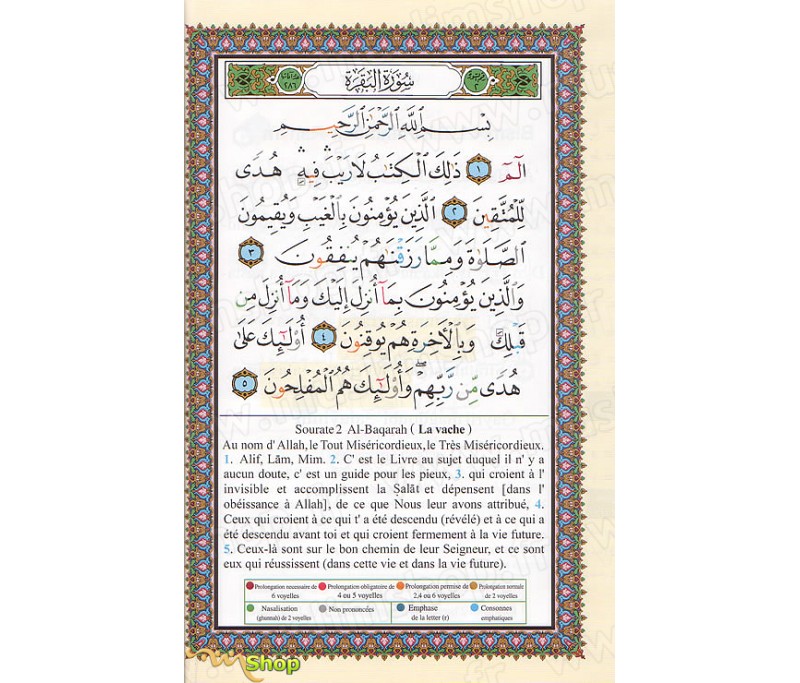 سُورَةُ البَقَرَةِ
٢٨٦
٢
بِسْمِ ٱللَّهِ ٱلرَّحْمَٰنِ ٱلرَّحِيمِ
الٓمٓ ١ ذَٰلِكَ ٱلْكِتَٰبُ لَا رَيْبَ ۛ فِيهِ ۛ هُدًى
لِّلْمُتَّقِينَ ٢ ٱلَّذِينَ يُؤْمِنُونَ بِٱلْغَيْبِ وَيُقِيمُونَ
ٱلصَّلَوٰةَ وَمِمَّا رَزَقْنَٰهُمْ يُنفِقُونَ ٣
وَٱلَّذِينَ يُؤْمِنُونَ بِمَآ أُنزِلَ إِلَيْكَ وَمَآ أُنزِلَ مِن
قَبْلِكَ وَبِٱلْءَاخِرَةِ هُمْ يُوقِنُونَ ٤ أُو۟لَٰٓئِكَ عَلَىٰ
هُدًى مِّن رَّبِّهِمْ ۖ وَأُو۟لَٰٓئِكَ هُمُ ٱلْمُفْلِحُونَ ٥
Sourate 2 Al-Baqarah ( La vache )
Au nom d' Allah, le Tout Miséricordieux, le Très Miséricordieux.
1. Alif, Lām, Mim. 2. C' est le Livre au sujet duquel il n' y a
aucun doute, c' est un guide pour les pieux, 3. qui croient à l'
invisible et accomplissent la Ṣalāt et dépensent [dans l'
obéissance à Allah], de ce que Nous leur avons attribué, 4.
Ceux qui croient à ce qui t' a été descendu (révélé) et à ce qui a
été descendu avant toi et qui croient fermement à la vie future.
5. Ceux-là sont sur le bon chemin de leur Seigneur, et ce sont
eux qui réussissent (dans cette vie et dans la vie future).
Prolongation necessaire de 6 voyelles
Prolongation obligatoire de 4 ou 5 voyelles
Prolongation permise de 2,4 ou 6 voyelles
Prolongation normale de 2 voyelles
Nasalisation (ghunnah) de 2 voyelles
Non prononcées
Emphase de la letter (r)
Consonnes emphatiques
Shop